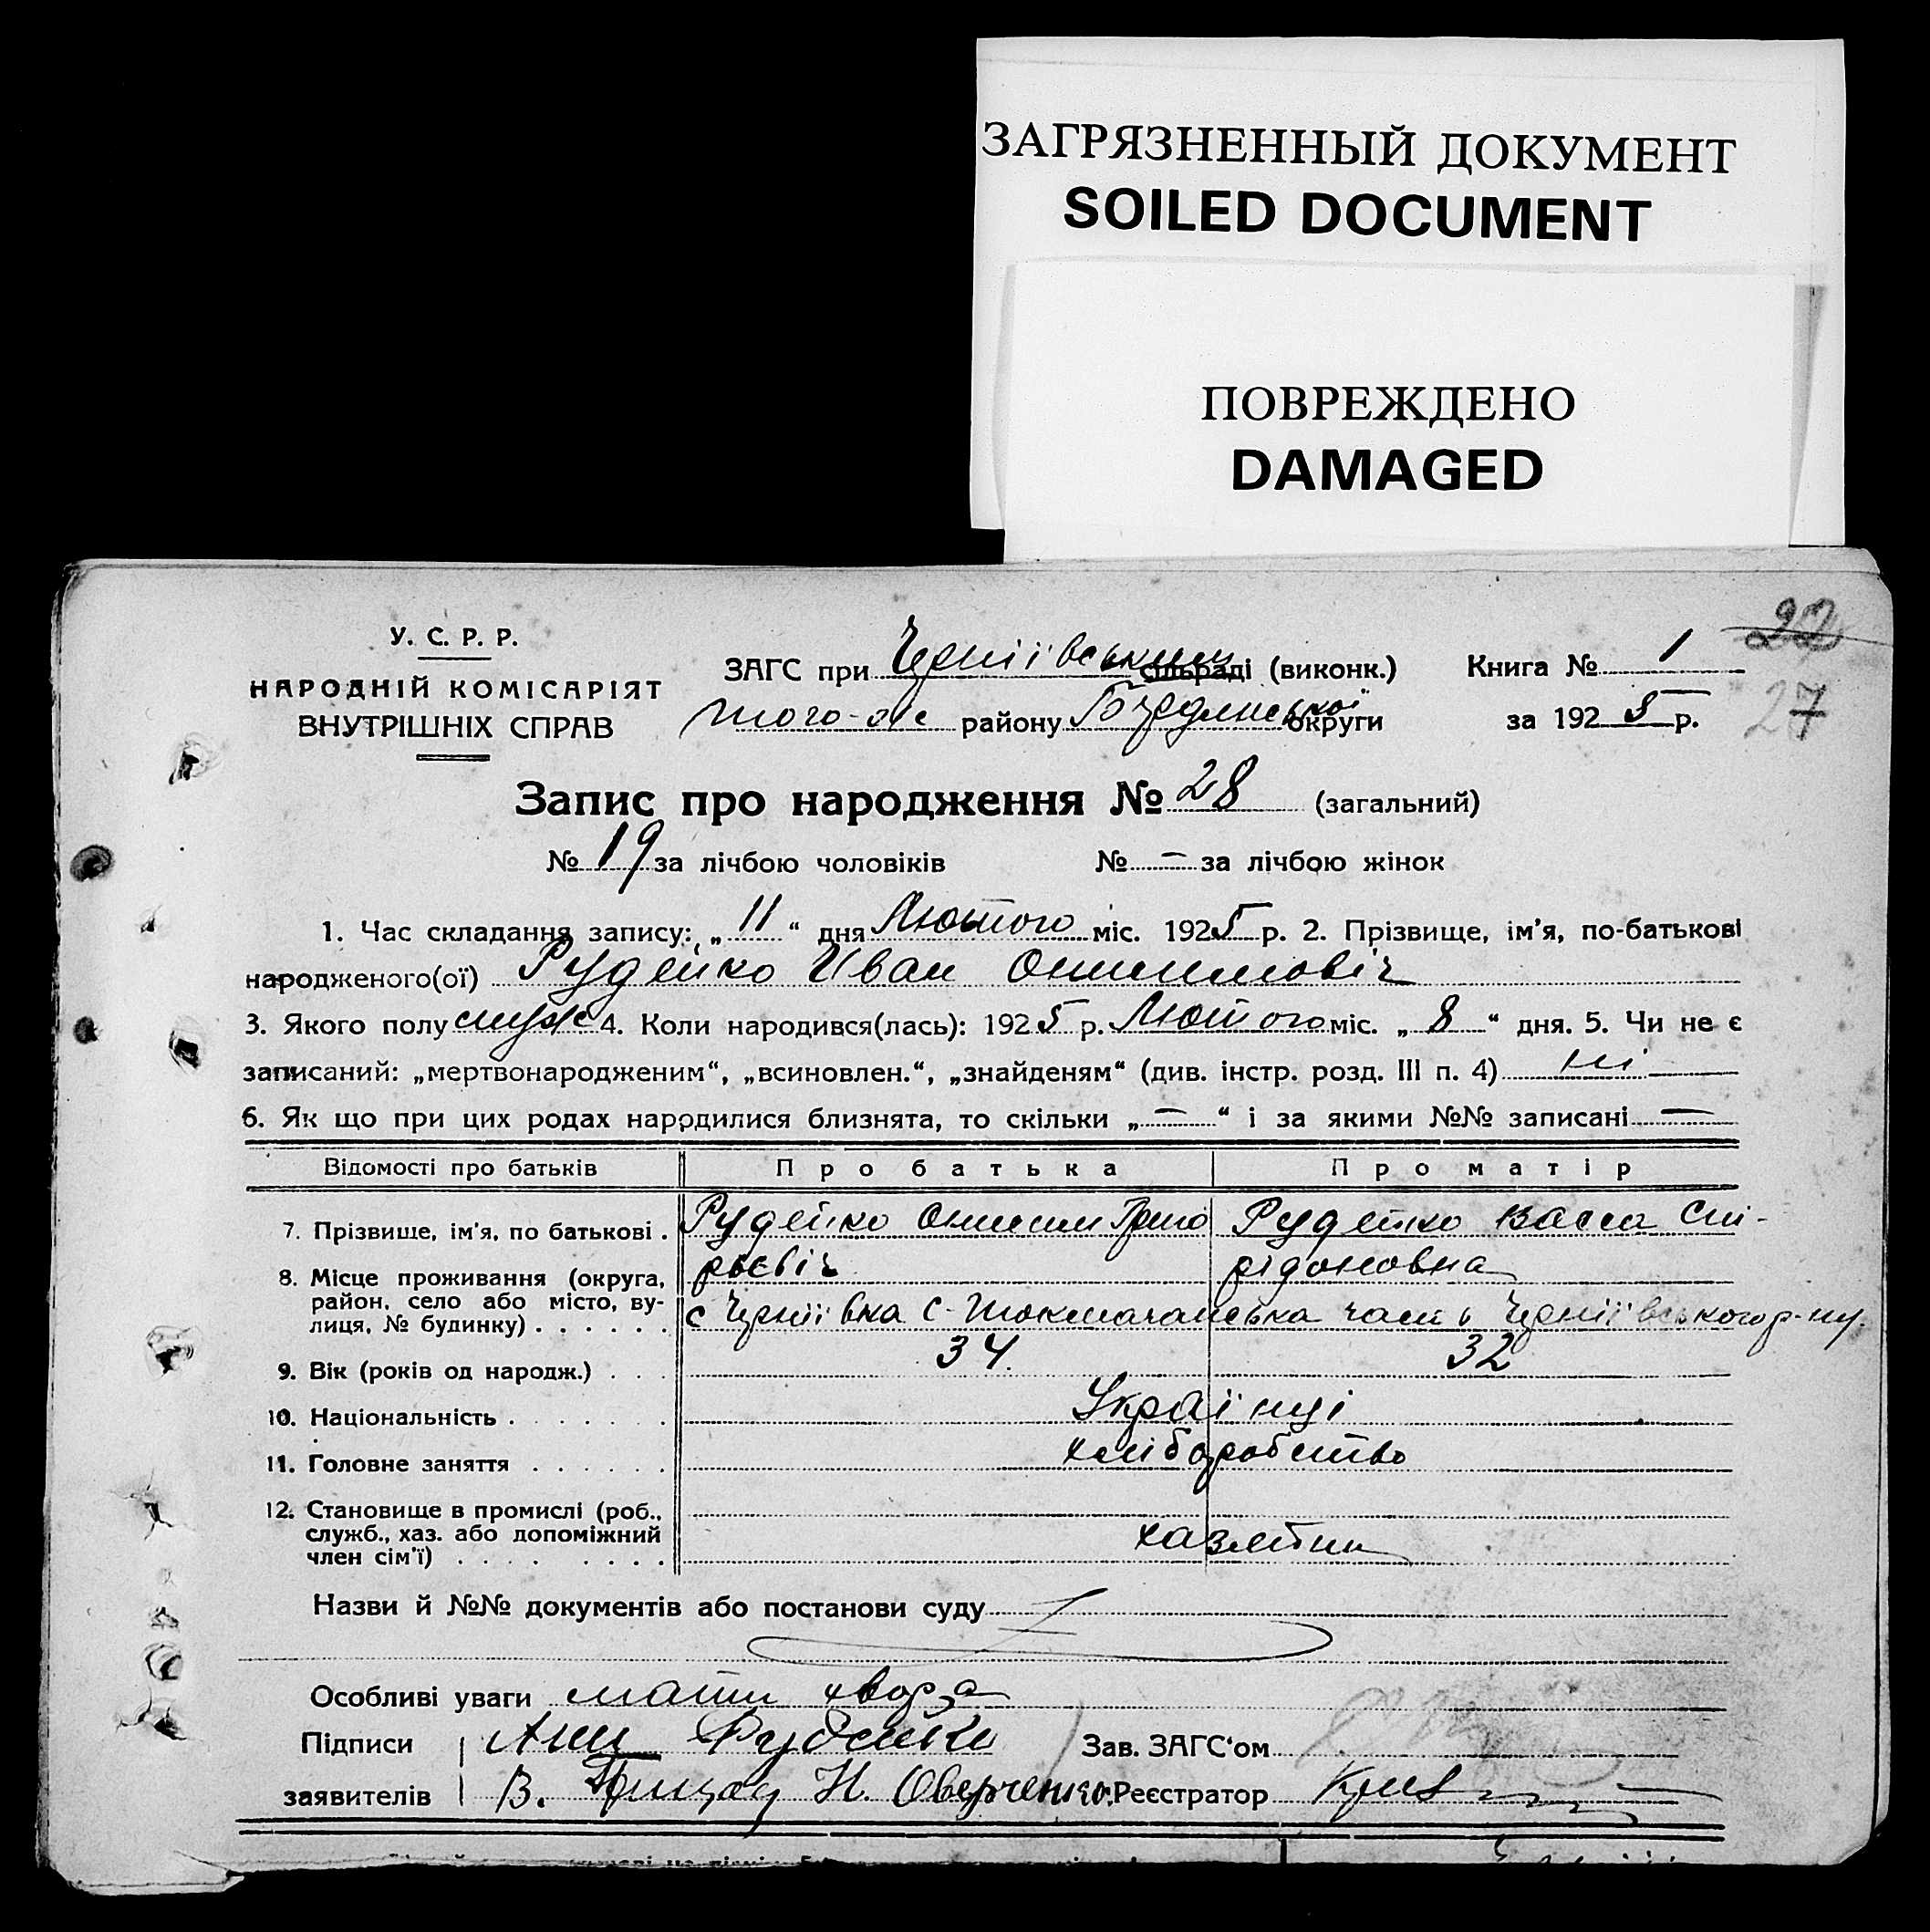 ЗАГРЯЗНЕННЫЙ ДОКУМЕНТ
SOILED DOCUMENT
ПОВРЕЖДЕНО
DAMAGED
22
27
У. С. Р. Р.
НАРОДНІЙ КОМІСАРІЯТ
ВНУТРІШНІХ СПРАВ
ЗАГС при Черніївським сільраді (виконк.) Книга № 1
того-же району Бердянської округи за 1925 р.
Запис про народження № 28 (загальний)
№ 19 за лічбою чоловіків № — за лічбою жінок
1. Час складання запису: „ 11 “ дня Лютого міс. 1925 р. 2. Прізвище, ім'я, по-батькові
народженого(ої) Рудейко Иван Онисимовіч
3. Якого полу муж 4. Коли народився(лась): 1925 р. Лютого міс. „ 8 “ дня. 5. Чи не є
записаний: „мертвонародженим“, „всиновлен.“, „знайденям“ (див. інстр. розд. III п. 4) ні
6. Як що при цих родах народилися близнята, то скільки „ — “ і за якими №№ записані —
Відомості про батьків Про батька Про матір
7. Прізвище, ім'я, по батькові . Рудейко Онисим Григо Рудейко Васса Спі-
рьєвіч рідоновна
8. Місце проживання (округа, район, село або місто, вулиця, № будинку) . . . . . . с Черніївка С-Токмачанська част ь Черніївського р-ну.
9. Вік (років од народж.) . . . 34. 32
10. Національність . . . . . . . Українці
11. Головне заняття . . . . . . хліборобство
12. Становище в промислі (роб., служб., хаз. або допоміжний член сім'ї) . . . . . . . . хазяїни
Назви й №№ документів або постанови суду
Особливі уваги мати хвора
Підписи Рудейко Зав. ЗАГС‘ом
заявителів В. Н. Оверченко. Реєстратор